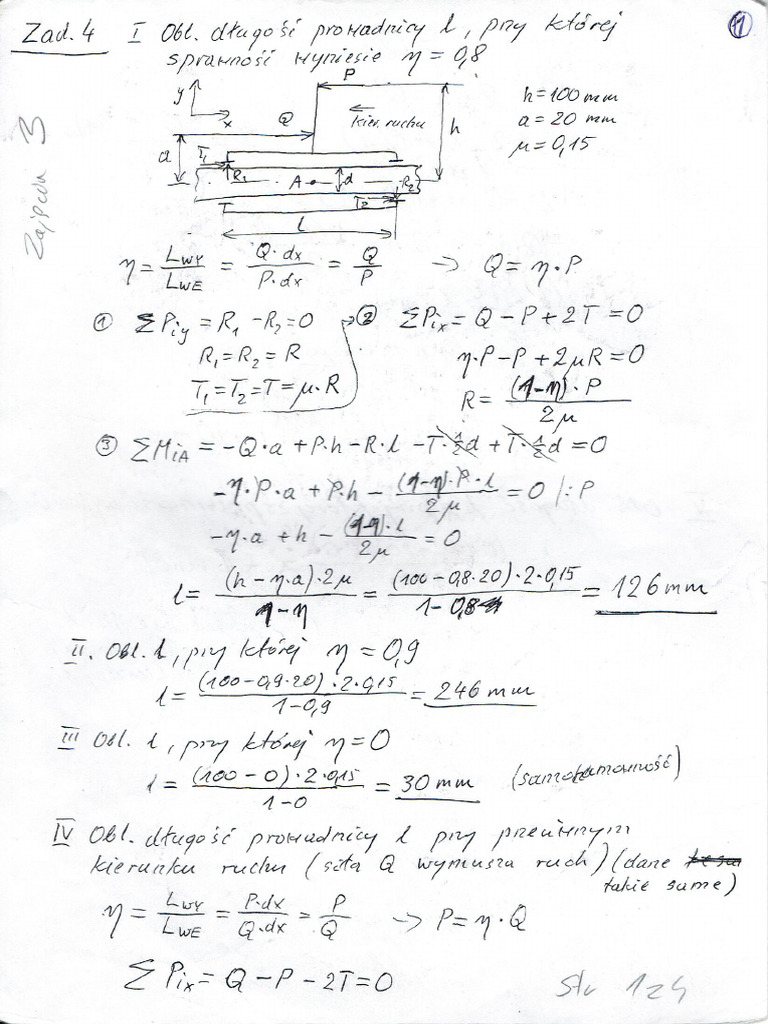 Zad. 4 I Obl. długość prowadnicy l, przy której
sprawność wyniesie η = 0,8
1
Zajęcia 3
y
x
P
Q
kier. ruchu
h
a
T₁
R₁
A
d
R₂
T₂
l
h = 100 mm
a = 20 mm
μ = 0,15
η = L_WY / L_WE = Q·dx / P·dx = Q / P → Q = η·P
① ΣPiy = R₁ - R₂ = 0
R₁ = R₂ = R
T₁ = T₂ = T = μ·R
② ΣPix = Q - P + 2T = 0
η·P - P + 2μR = 0
R = (1-η)·P / 2μ
③ ΣMiA = -Q·a + P·h - R·l - T·½d + T·½d = 0
-η·P·a + P·h - (1-η)·P·l / 2μ = 0 /:P
-η·a + h - (1-η)·l / 2μ = 0
l = (h - η·a)·2μ / 1-η = (100-0,8·20)·2·0,15 / 1-0,8 = 126 mm
II. Obl. l, przy której η = 0,9
l = (100-0,9·20)·2·0,15 / 1-0,9 = 246 mm
III Obl. l, przy której η = 0
l = (100-0)·2·0,15 / 1-0 = 30 mm (samohamowność)
IV Obl. długość prowadnicy l przy przeciwnym
kierunku ruchu (siła Q wymusza ruch) (dane
takie same)
η = L_WY / L_WE = P·dx / Q·dx = P / Q → P = η·Q
ΣPix = Q - P - 2T = 0
Str 1z4